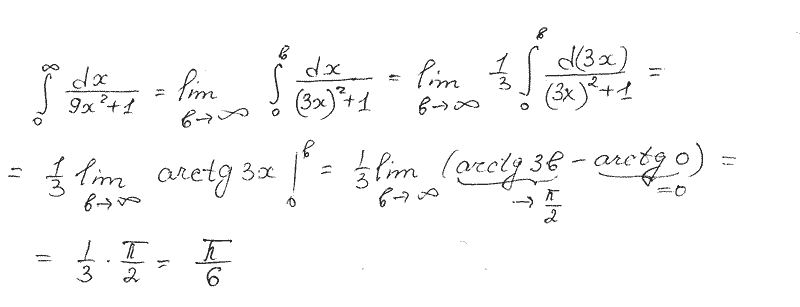 ∫₀^∞ dx/(9x²+1) = lim_{b→∞} ∫₀^b dx/((3x)²+1) = lim_{b→∞} 1/3 ∫₀^b d(3x)/((3x)²+1) =
= 1/3 lim_{b→∞} arctg 3x |₀^b = 1/3 lim_{b→∞} (arctg 3b − arctg 0) = → π/2 = 0
= 1/3 · π/2 = π/6